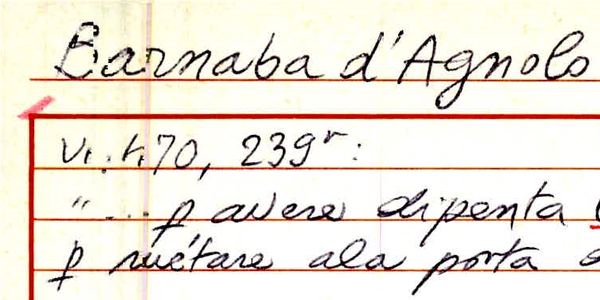 Barnaba d'Agnolo
239r:
"... ꝑ avere dipenta
ꝑ metare ala porta